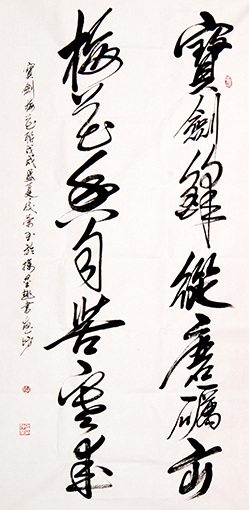 寶劍鋒從磨礪出
梅花香自苦寒來
寶劍梅花聯戊戌盛夏